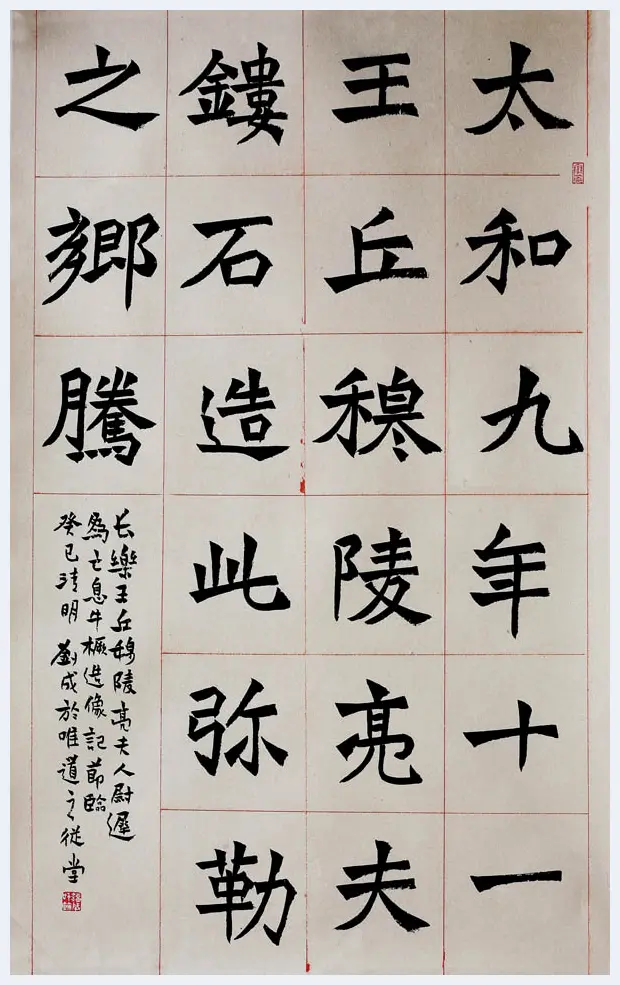 太和九年十一
王丘穆陵亮夫
鏤石造此弥勒
之鄉騰
长樂王丘穆陵亮夫人尉遲
為亡息牛橛造像記節臨
癸巳清明劉成於唯道之從堂